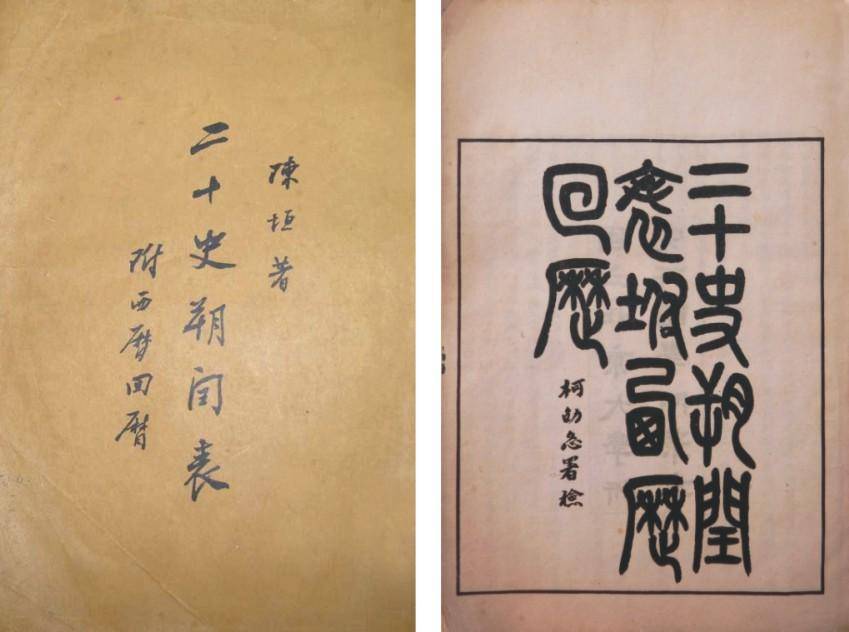 陳垣著
二十史朔閏表
附西曆回曆
二十史朔閏
表坿西歷
回歷
柯劭忞署檢